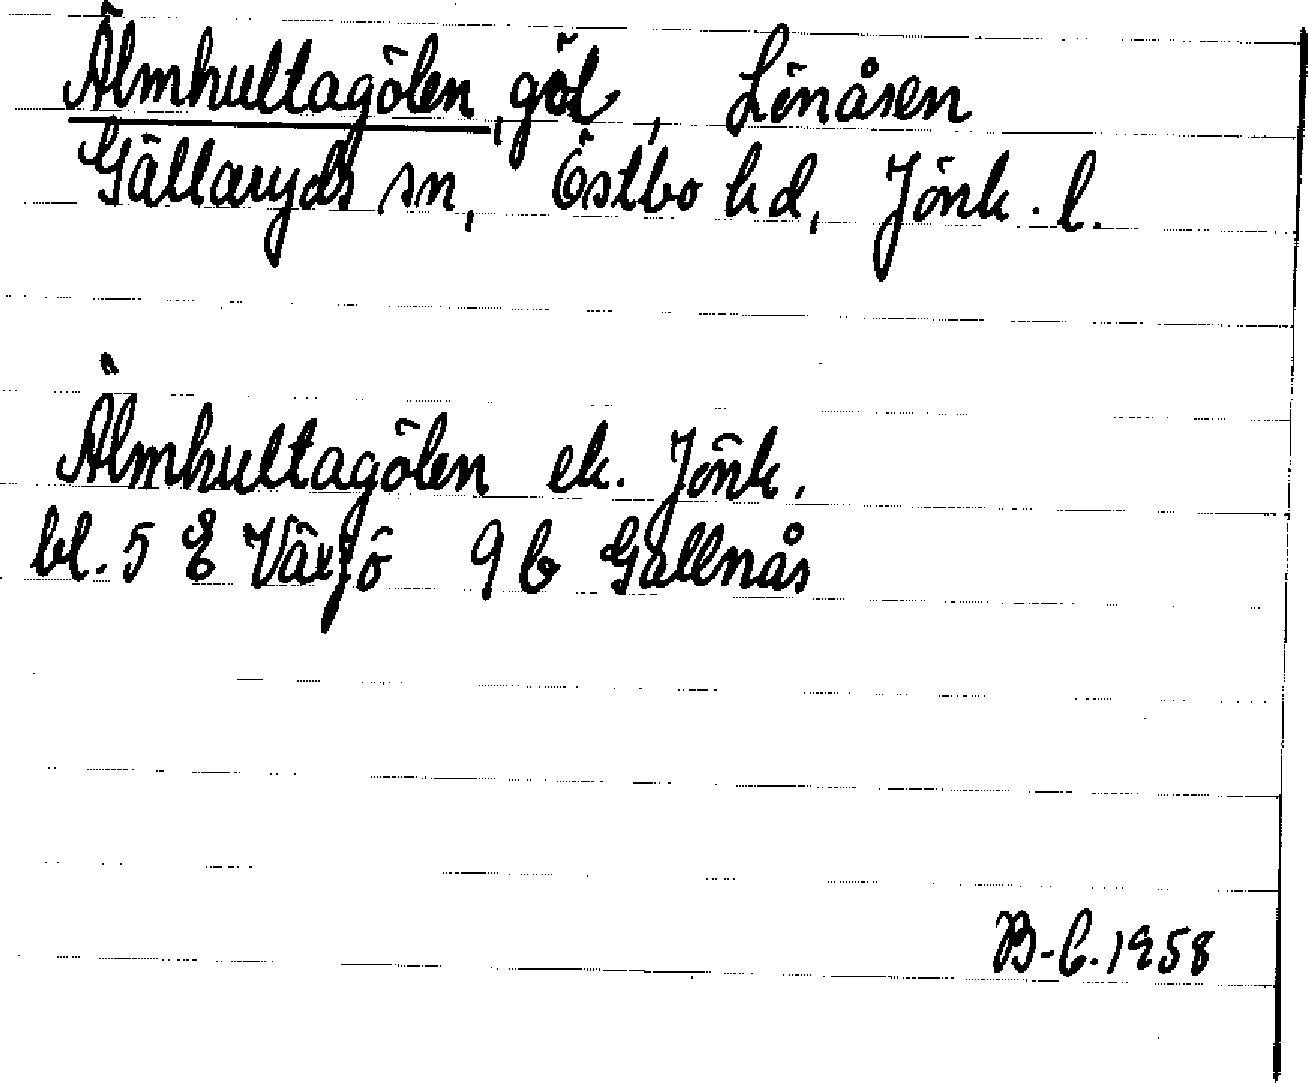 Älmhultagölen, göl, Linåsen
Gällaryds sn, Östbo hd, Jönk. l.
Älmhultagölen ek. Jönk.
bl. 5 E Växjö 9 b Gällnås
B-C. 1958